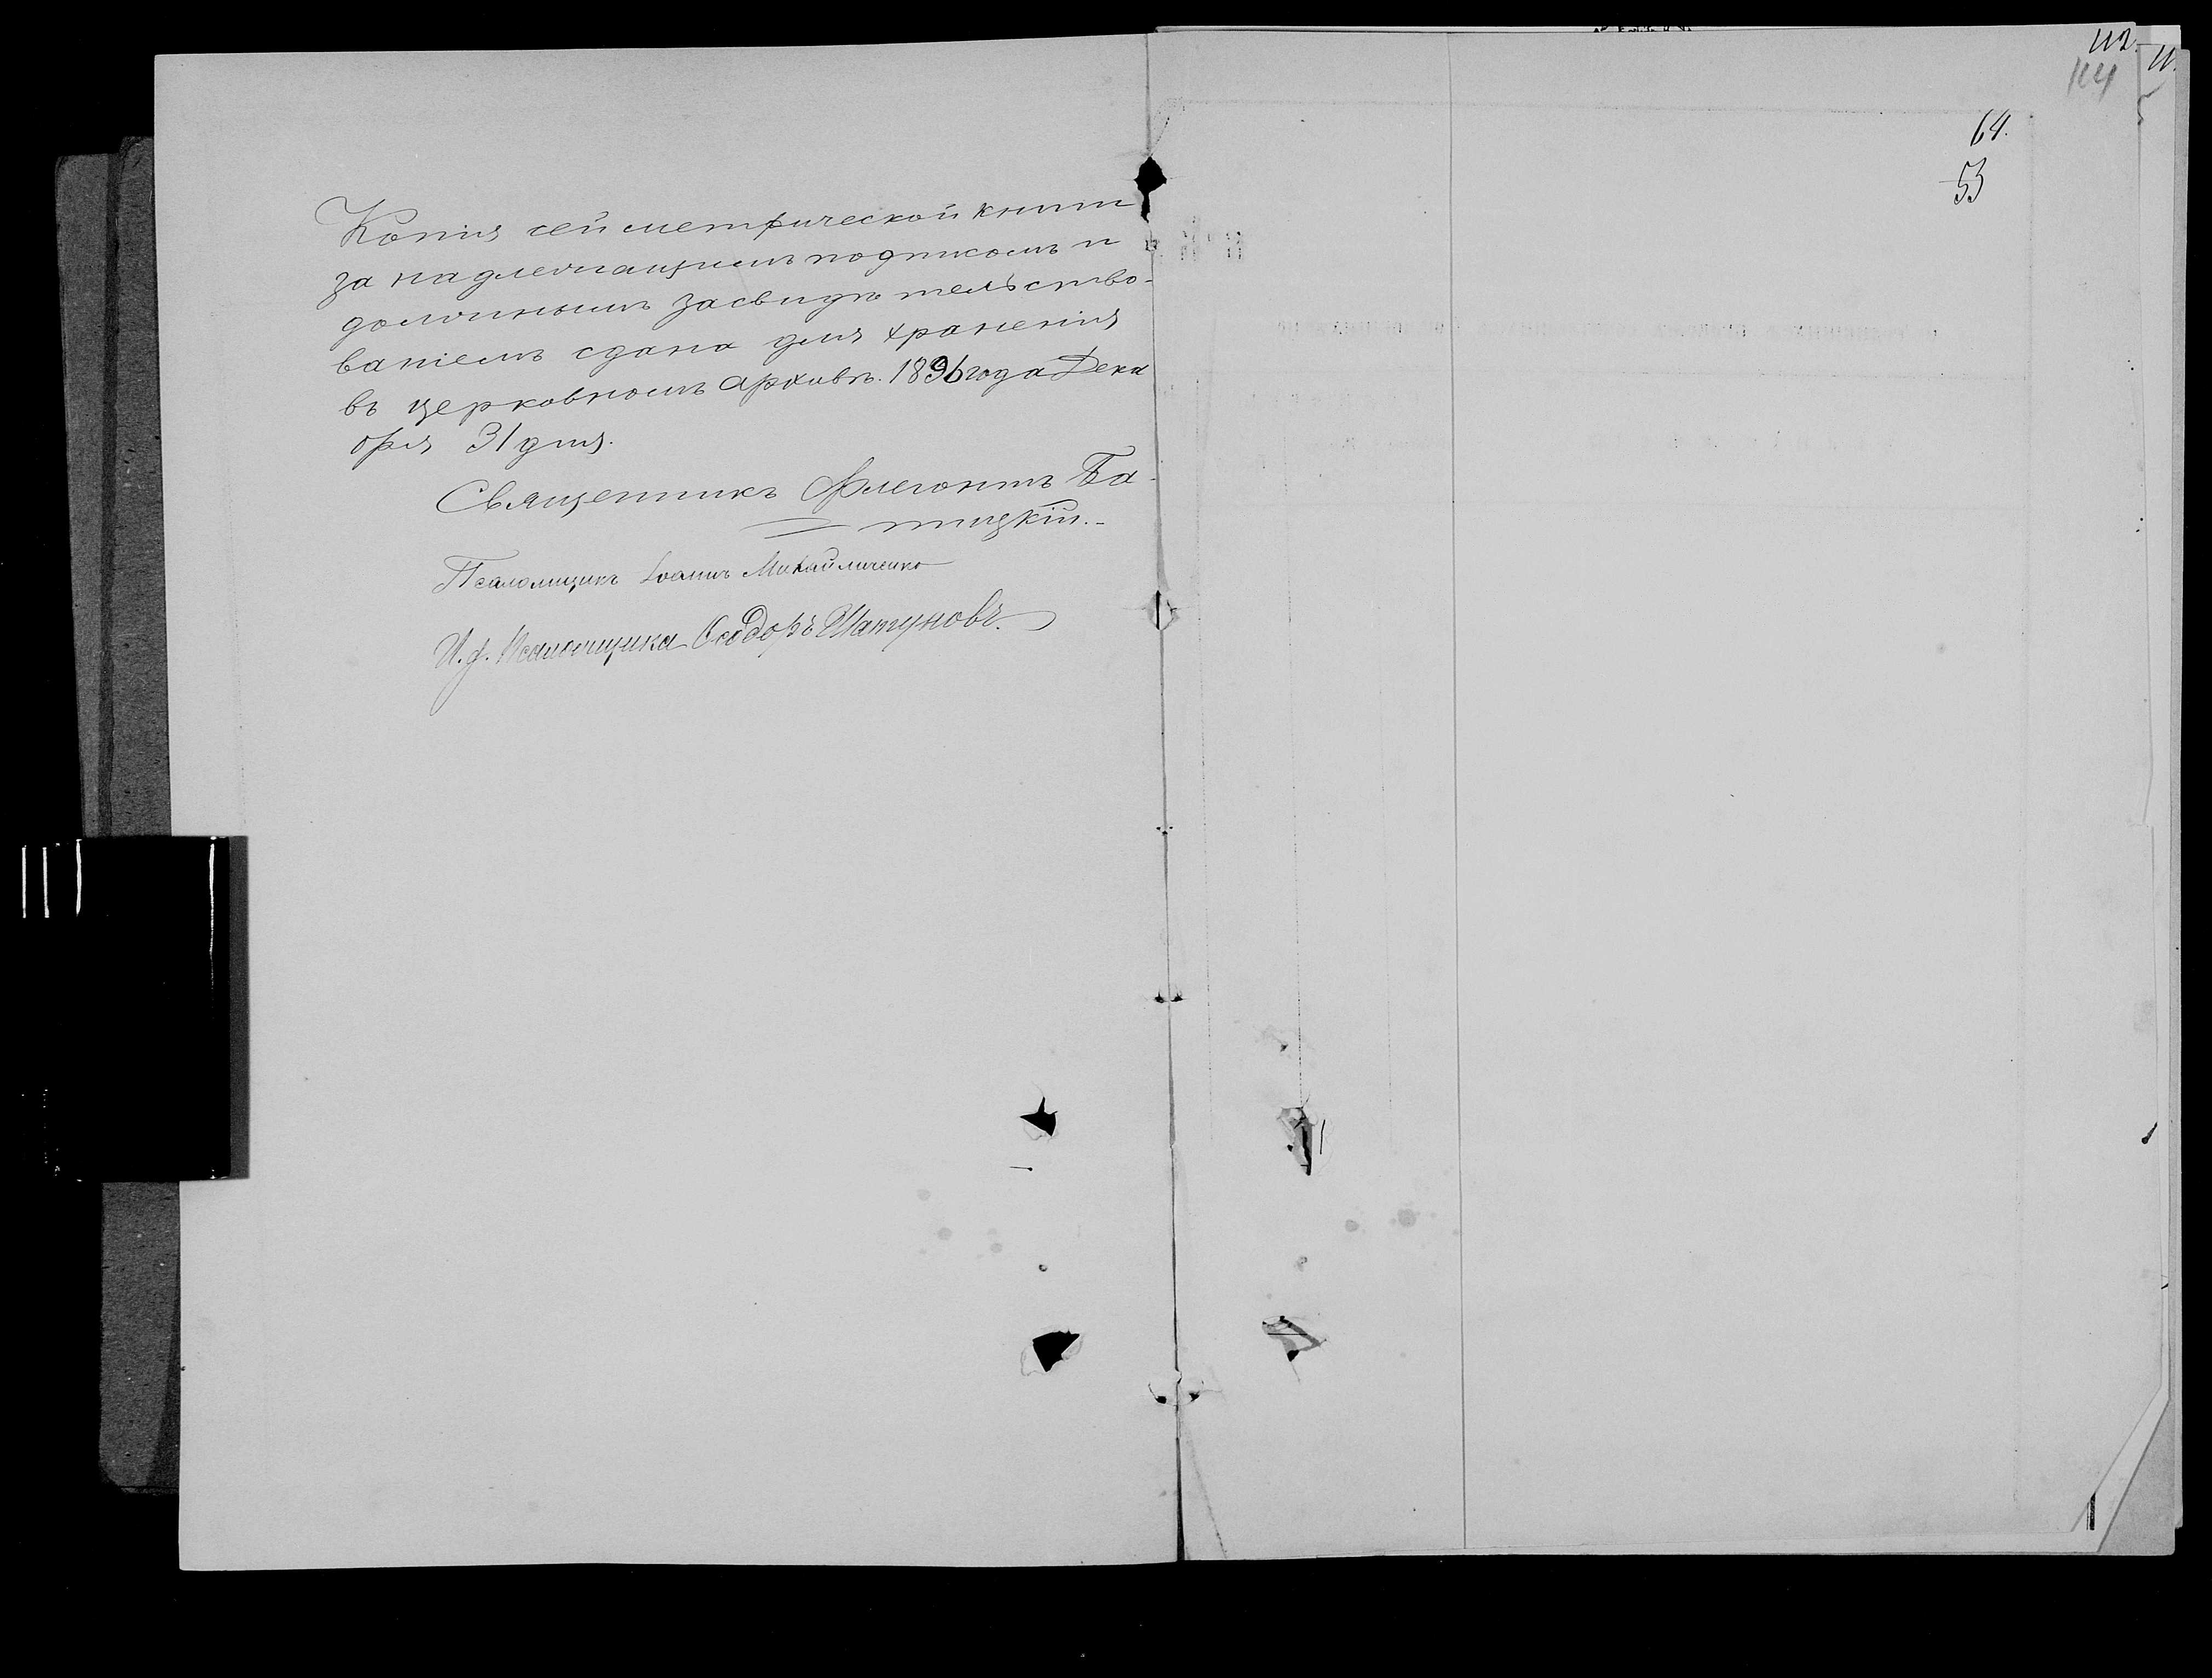 Копія сей метрической книги
за надлежащимъ подписомъ и
должнымъ засвидѣтельство-
ваніемъ сдана для храненія
въ церковномъ архивѣ. 1896 года Дека
бря 31 дня.
Священникъ Флегонтъ Ба-
тицкій.-
Псаломщикъ Іоаннъ Михайличенко
И. д. Псаломщика Ѳеодоръ Шатуновъ.
112.
114
11.
64.
53